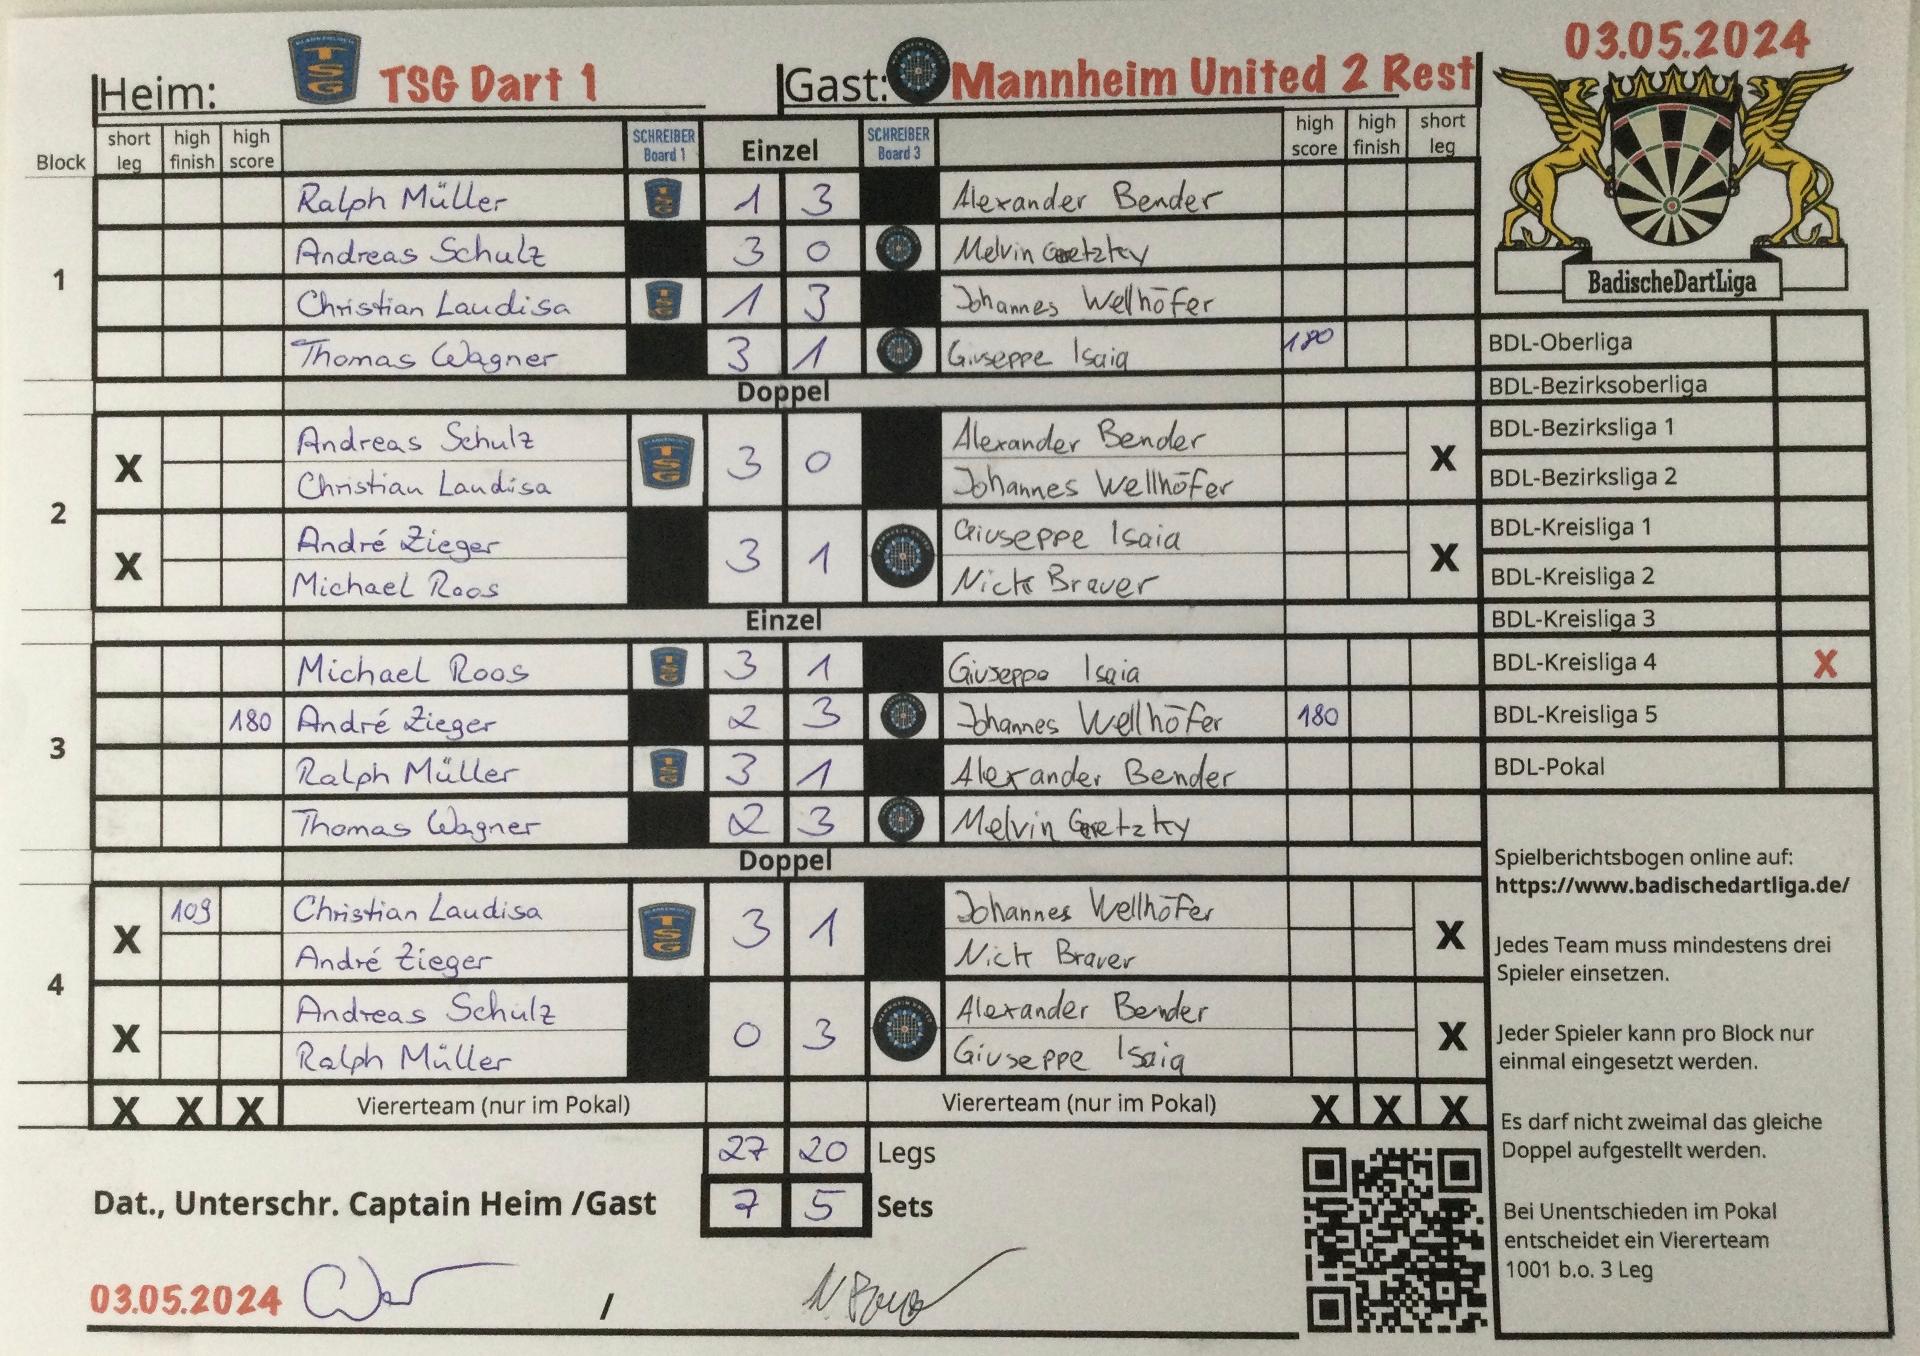 03.05.2024
Heim: TSG TSG Dart 1 Gast: Mannheim United 2 Rest
Block short leg high finish high score SCHREIBER Board 1 Einzel SCHREIBER Board 3 high score high finish short leg
1
Ralph Müller TSG 1 3 Alexander Bender
Andreas Schulz 3 0 Melvin Geretzky
Christian Laudisa TSG 1 3 Johannes Wellhöfer
Thomas Wagner 3 1 Giuseppe Isaia 180
Doppel
2
X Andreas Schulz TSG 3 0 Alexander Bender X
Christian Laudisa Johannes Wellhöfer
X André Zieger 3 1 Giuseppe Isaia X
Michael Roos Nick Brauer
Einzel
3
Michael Roos TSG 3 1 Giuseppe Isaia
180 André Zieger 2 3 Johannes Wellhöfer 180
Ralph Müller TSG 3 1 Alexander Bender
Thomas Wagner 2 3 Melvin Geretzky
Doppel
4
X 109 Christian Laudisa TSG 3 1 Johannes Wellhöfer X
André Zieger Nick Brauer
X Andreas Schulz 0 3 Alexander Bender X
Ralph Müller Giuseppe Isaia
X X X Viererteam (nur im Pokal) Viererteam (nur im Pokal) X X X
27 20 Legs
Dat., Unterschr. Captain Heim /Gast 7 5 Sets
03.05.2024 /
BadischeDartLiga
BDL-Oberliga
BDL-Bezirksoberliga
BDL-Bezirksliga 1
BDL-Bezirksliga 2
BDL-Kreisliga 1
BDL-Kreisliga 2
BDL-Kreisliga 3
BDL-Kreisliga 4 X
BDL-Kreisliga 5
BDL-Pokal
Spielberichtsbogen online auf:
https://www.badischedartliga.de/
Jedes Team muss mindestens drei
Spieler einsetzen.
Jeder Spieler kann pro Block nur
einmal eingesetzt werden.
Es darf nicht zweimal das gleiche
Doppel aufgestellt werden.
Bei Unentschieden im Pokal
entscheidet ein Viererteam
1001 b.o. 3 Leg